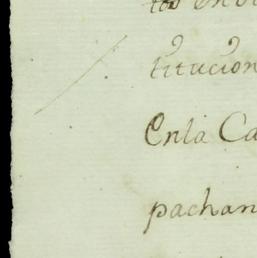 titucion
Enla Ca
pachan